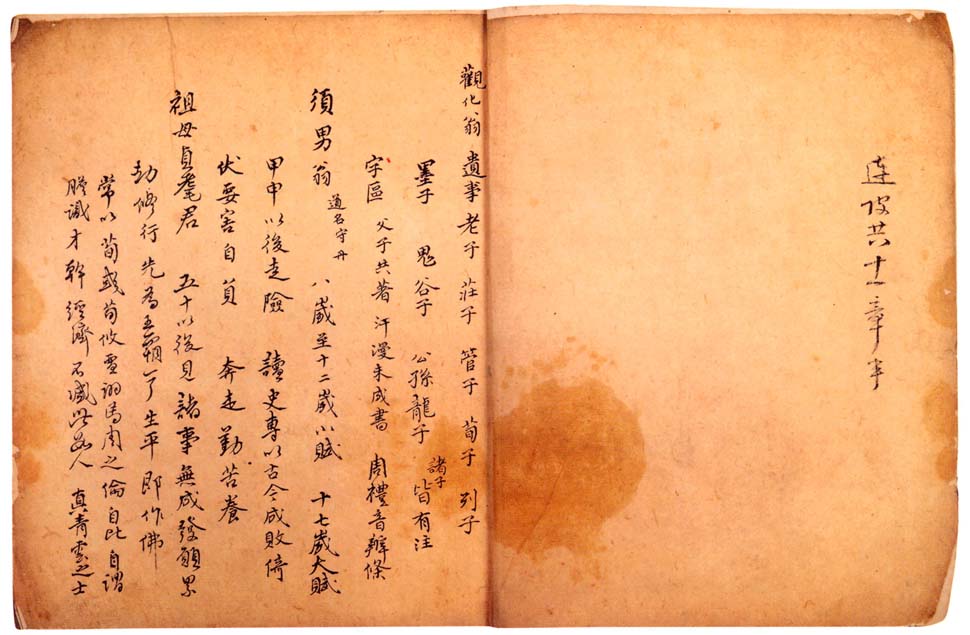 連共十一章半
觀化翁遺事老子 莊子 管子 荀子 列子
墨子 鬼谷子 公孫龍子 諸子 皆有注
字區 父子共著汗漫未成書 周禮音辨條
須男翁 道名守丹 八歲至十二歲以賦 十七歲大賦
甲申以後走險 讀史專以古今成敗倚
伏要害自負 奔走勤苦養
祖母貞髦君 五十以後見諸事無成發願累
劫修行先為王霸了生平即作佛
常以荀彧荀攸賈詡馬周之倫自比自謂
膽識才幹經濟不減此數人 真青雲之士